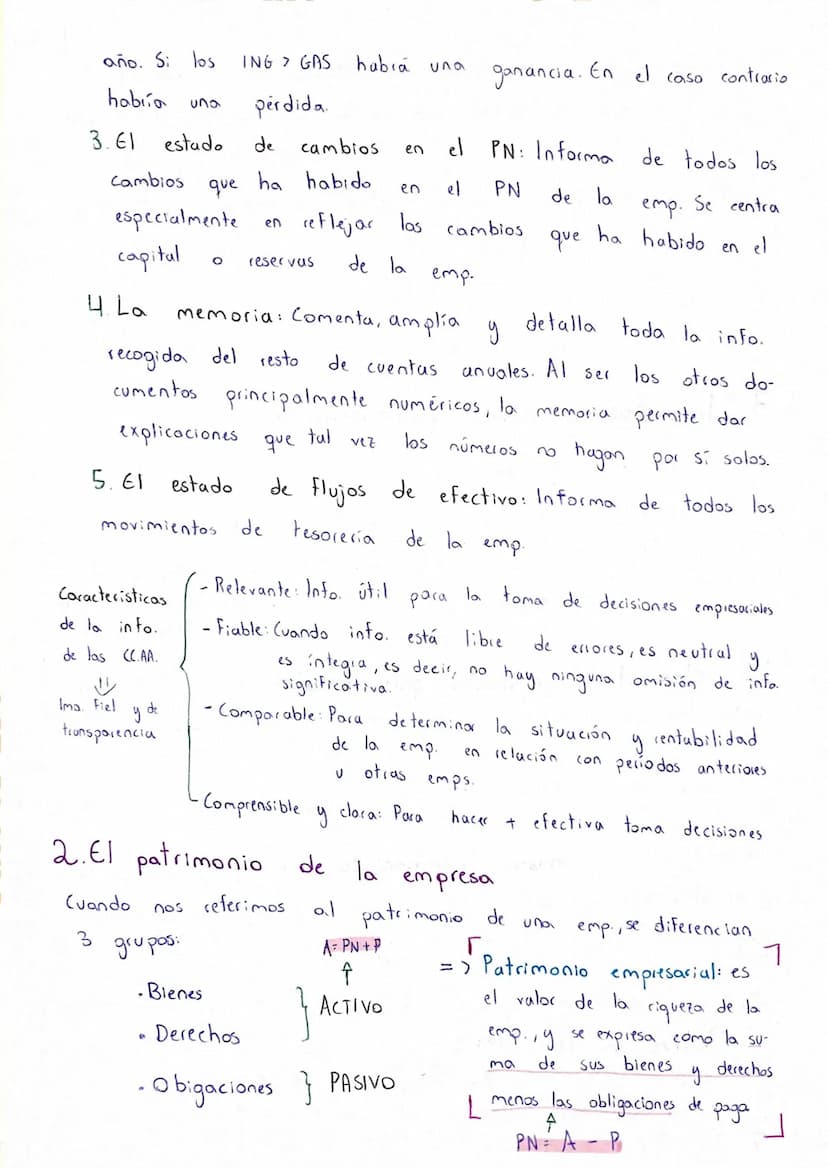 año. Si los ING > GAS habrá una ganancia. En el caso contrario
habría una pérdida.
3. El estado de cambios en el PN: Informa de todos los
cambios que ha habido en el PN de la emp. Se centra
especialmente en reflejar los cambios que ha habido en el
capital o reservas de la emp.
4. La memoria: Comenta, amplía y detalla toda la info.
recogida del resto de cuentas anuales. Al ser los otros do-
cumentos principalmente numéricos, la memoria permite dar
explicaciones que tal vez los números no hagan por sí solos.
5. El estado de flujos de efectivo: Informa de todos los
movimientos de tesorería de la emp.
Características
de la info.
de las CC.AA.
⇓
Ima. Fiel y de
transparencia
- Relevante: Info. útil para la toma de decisiones empresariales
- Fiable: Cuando info. está libre de errores, es neutral y
es íntegra, es decir, no hay ninguna omisión de info.
significativa.
- Comparable: Para determinar la situación y rentabilidad
de la emp. en relación con períodos anteriores
u otras emps.
- Comprensible y clara: Para hacer + efectiva toma decisiones
2. El patrimonio de la empresa
Cuando nos referimos al patrimonio de una emp., se diferencian
3 grupos:
· Bienes
· Derechos
· Obigaciones
A = PN + P
↑
ACTIVO
PASIVO
=> Patrimonio empresarial: es
el valor de la riqueza de la
emp., y se expresa como la su-
ma de sus bienes y derechos
menos las obligaciones de paga
↑
PN = A - P